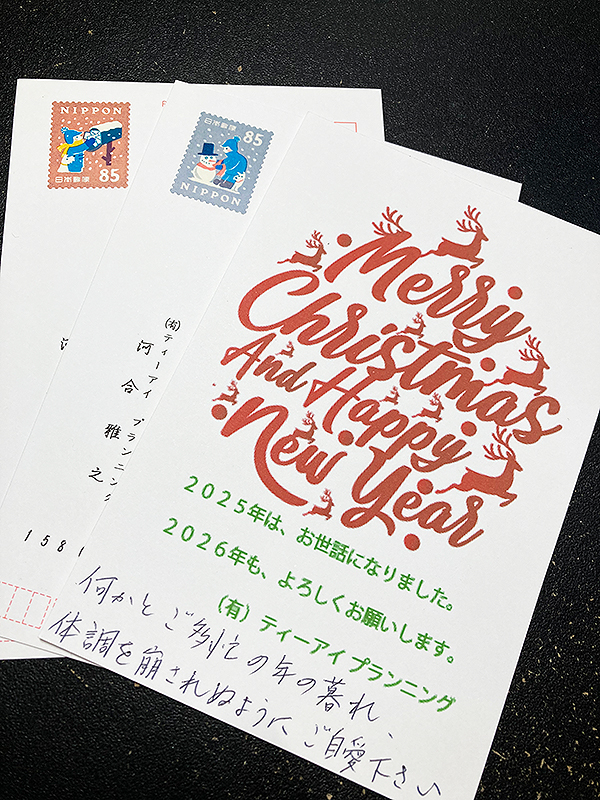 NIPPON
日本郵便 85
日本郵便 85
NIPPON
(有)ティーアイ プランニング
河合雅之
158
Merry
Christmas
And Happy
New Year
2025年は、お世話になりました。
2026年も、よろしくお願いします。
(有) ティーアイ プランニング
何かとご多忙の年の暮れ、
体調を崩されぬようにご自愛下さい